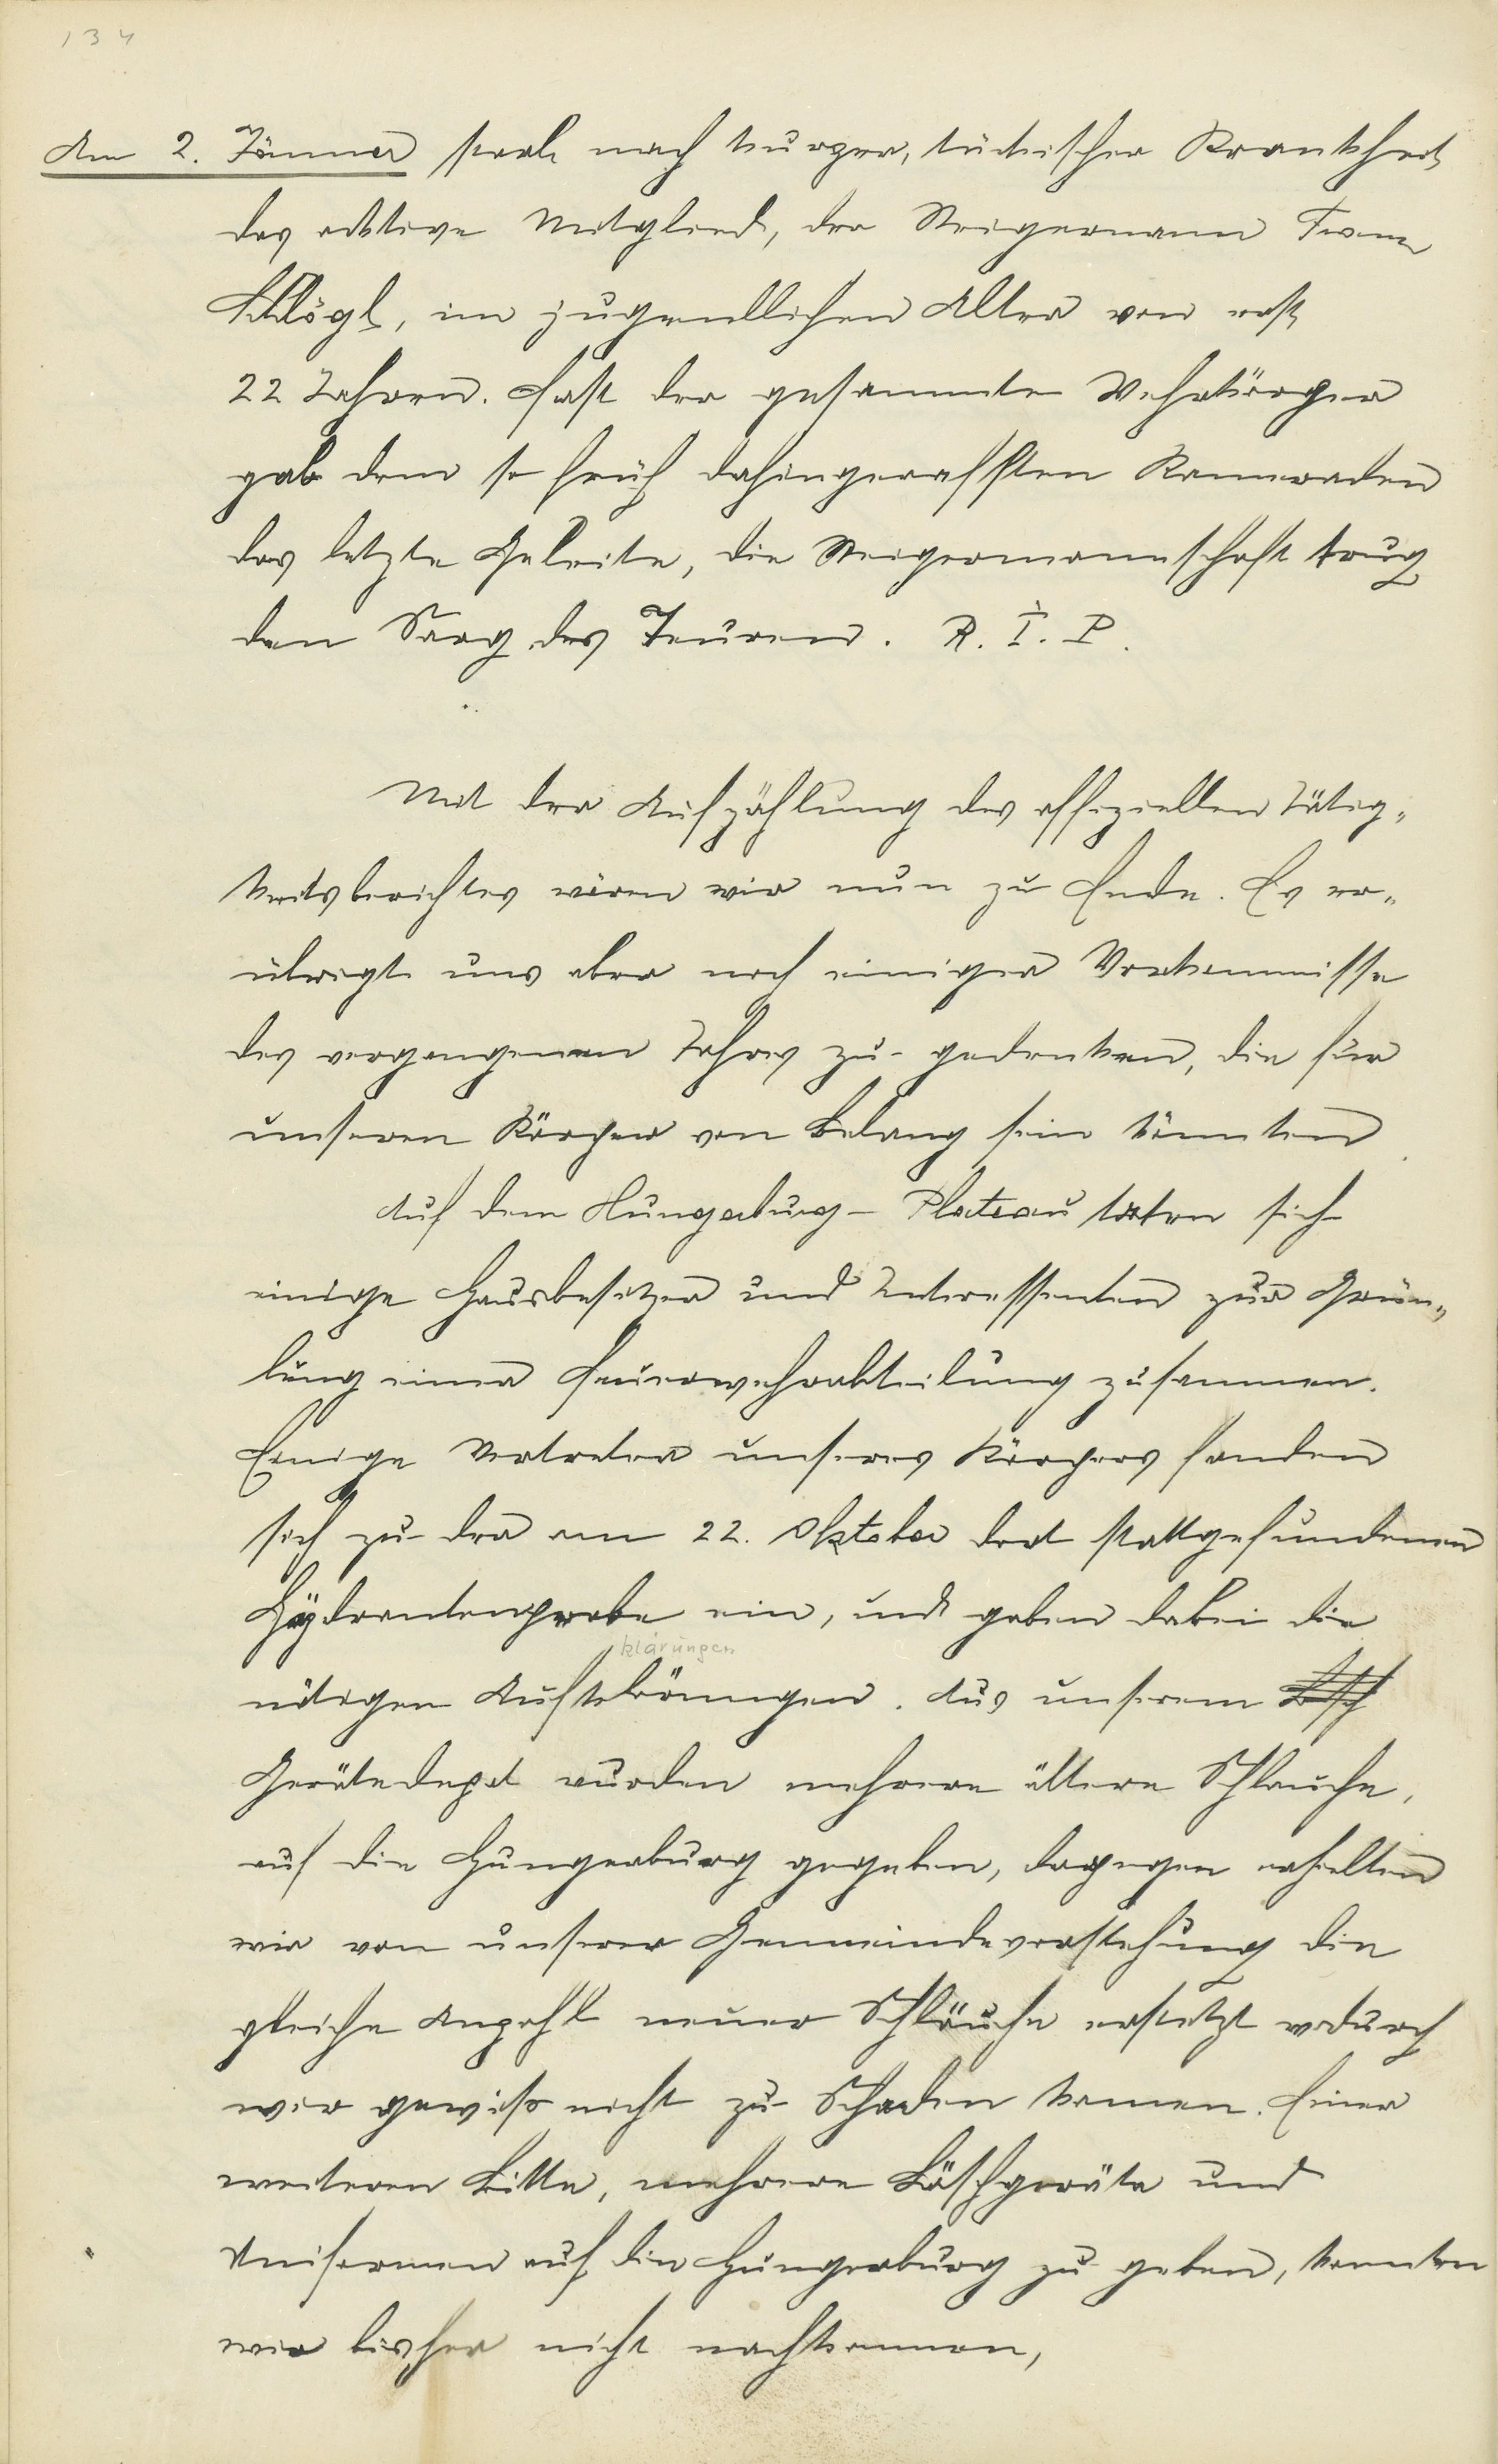 134
Am 2. Jänner starb nach kurzer, tückischer Krankheit
das aktive Mitglied, der Steigermann Franz
Schlögl, im jugendlichen Alter von erst
22 Jahren. Fast der gesammte Wehrkörper
gab dem so früh dahingerafften Kameraden
das letzte Geleite, die Steigermannschaft trug
den Sarg des Teuren. R. I. P.
Mit der Aufzählung des offiziellen Tätig-
keitsberichtes wären wir nun zu Ende. Es er-
übrigt uns aber noch einiger Vorkommnisse
des vergangenen Jahres zu gedenken, die für
unseren Körper von Belang sein könnten.
Auf dem Hungerburg-Plateau taten sich
einige Hausbesitzer und Interessenten zur Grün-
dung einer Feuerwehrabteilung zusammen.
Einige Vertreter unseres Körpers fanden
sich zu der am 22. Oktober dort stattgefundenen
Hydrantenprobe ein, und gaben dabei die
klärungen
nötigen . Aus unserem
Gerätedepot wurden mehrere ältere Schlauche,
auf die Hungerburg gegeben, dagegen erhielten
wir von unserer Gemeindevorstehung die
gleiche Anzahl neuer Schläuche ersetzt wodurch
wir gewiß nicht zu Schaden kamen. Einer
weiteren Bitte, mehrere Löschgeräte und
Uniformen auf die Hungerburg zu geben, konnten
wir bisher nicht nachkommen,